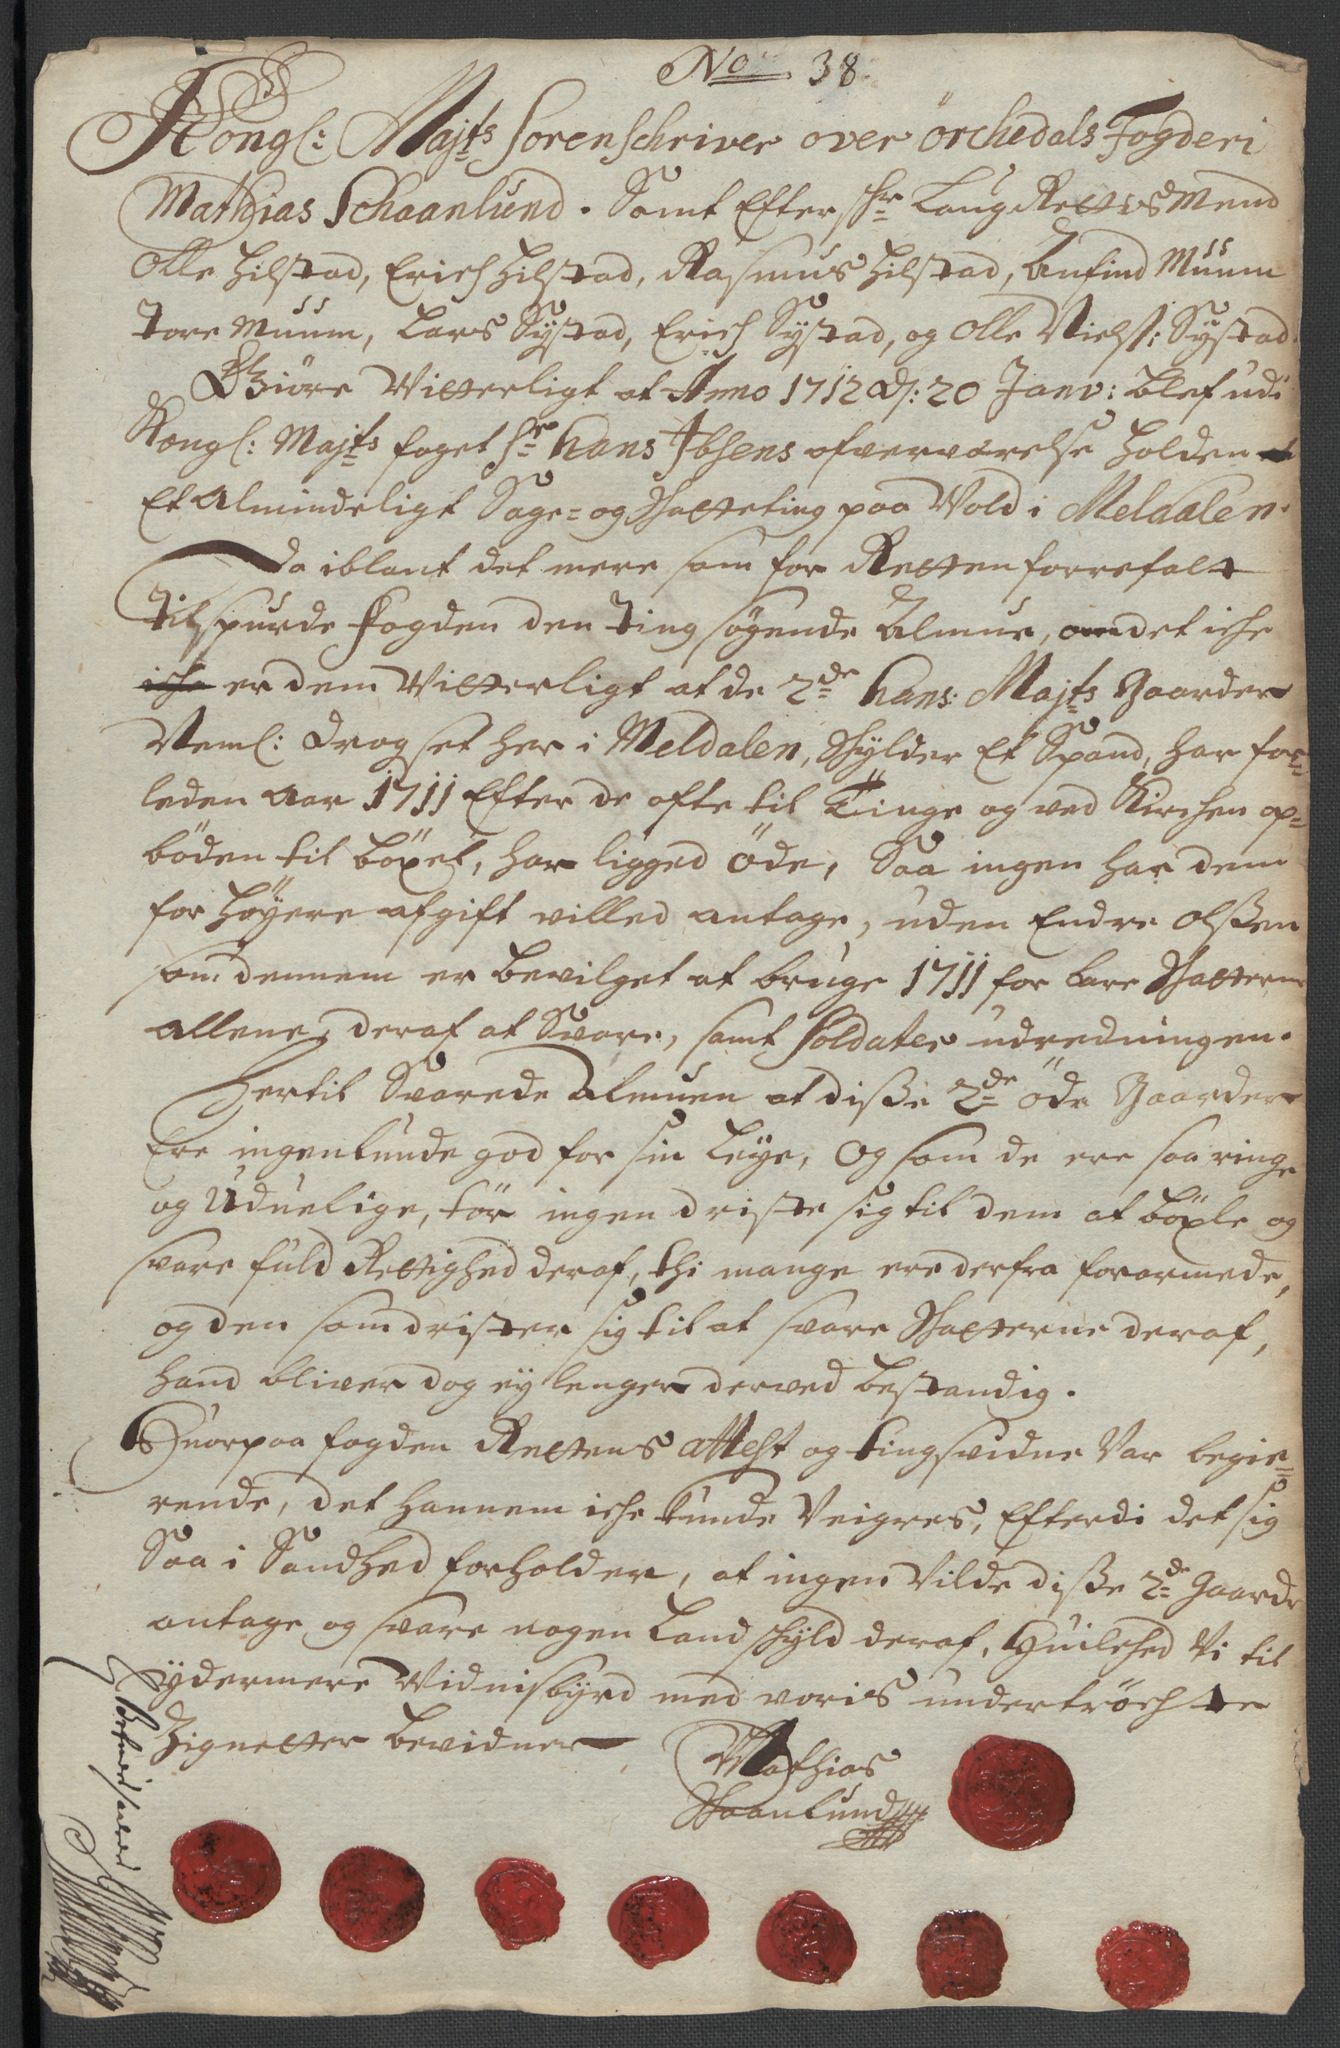 No 38.
Kongl: Majts Sorenschriver over örchedals Fogderi
Mathias Schaanlund. Samt Efter schr Laug Rettes Mend
Olle Hilstad, Erich Hilstad, Rasmus Hilstad, Anfind Muum
Tore Muum, Lars Systad, Erich Systad, og Olle Niels: Systad.
Giöre Vitterligt at Anno 1712 d: 20 Janv: blef udi
Kongl: Majts foget Sr Hans Ibsens ofverværelse holden
Et Almindeligt Sage- og Schatteting paa Vold i Meldalen.
Da iblant det mere som for Retten forrefalt
Tilspurde Fogden den Ting søgende Almue, om det iche
iche er dem Vitterligt at de 2de Hans Majts Gaarder
Neml: Drogset her i Meldalen, Schylder Et Spand, har for-
leden Aar 1711 Efter de ofte til Tinge og ved Kirchen op-
böden til böxel, har ligged Öde, Saa ingen har dem
for høyere afgift villed antage, uden Endre Olssen
som dennem er bevilget at bruge 1711 for bare Schatterne
allene, deraf at Svare, samt Soldater udredningen.
Hertil Svarede Almuen at disse 2de öde Gaarder
Ere ingenlunde god for sin Leye, Og som de ere saa ringe
og Uduelige, tör ingen driste sig til dem at böxle og
svare fuld Rettighed deraf, thi mange ere derfra forarmede,
og den som drister sig til at svare Schatterne deraf,
hand bliver dog ey lenger derved bestandig.
Huorpaa fogden Rettens attest og tingsvidne Var begie-
rende, det hannem iche kunde Veigres, Efterdi det sig
Saa i Sandhed forholder, at ingen Vilde disse 2de Gaarde
antage og svare nogen Landschyld deraf, Huilched Vi til
ydermere Vidnisbyrd med voris undertröchte
Zignetter bevidner
Mathias
Schaanlund